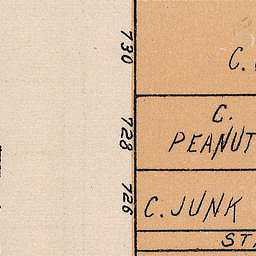 730
C.
728
C.
PEANUT
726
C. JUNK